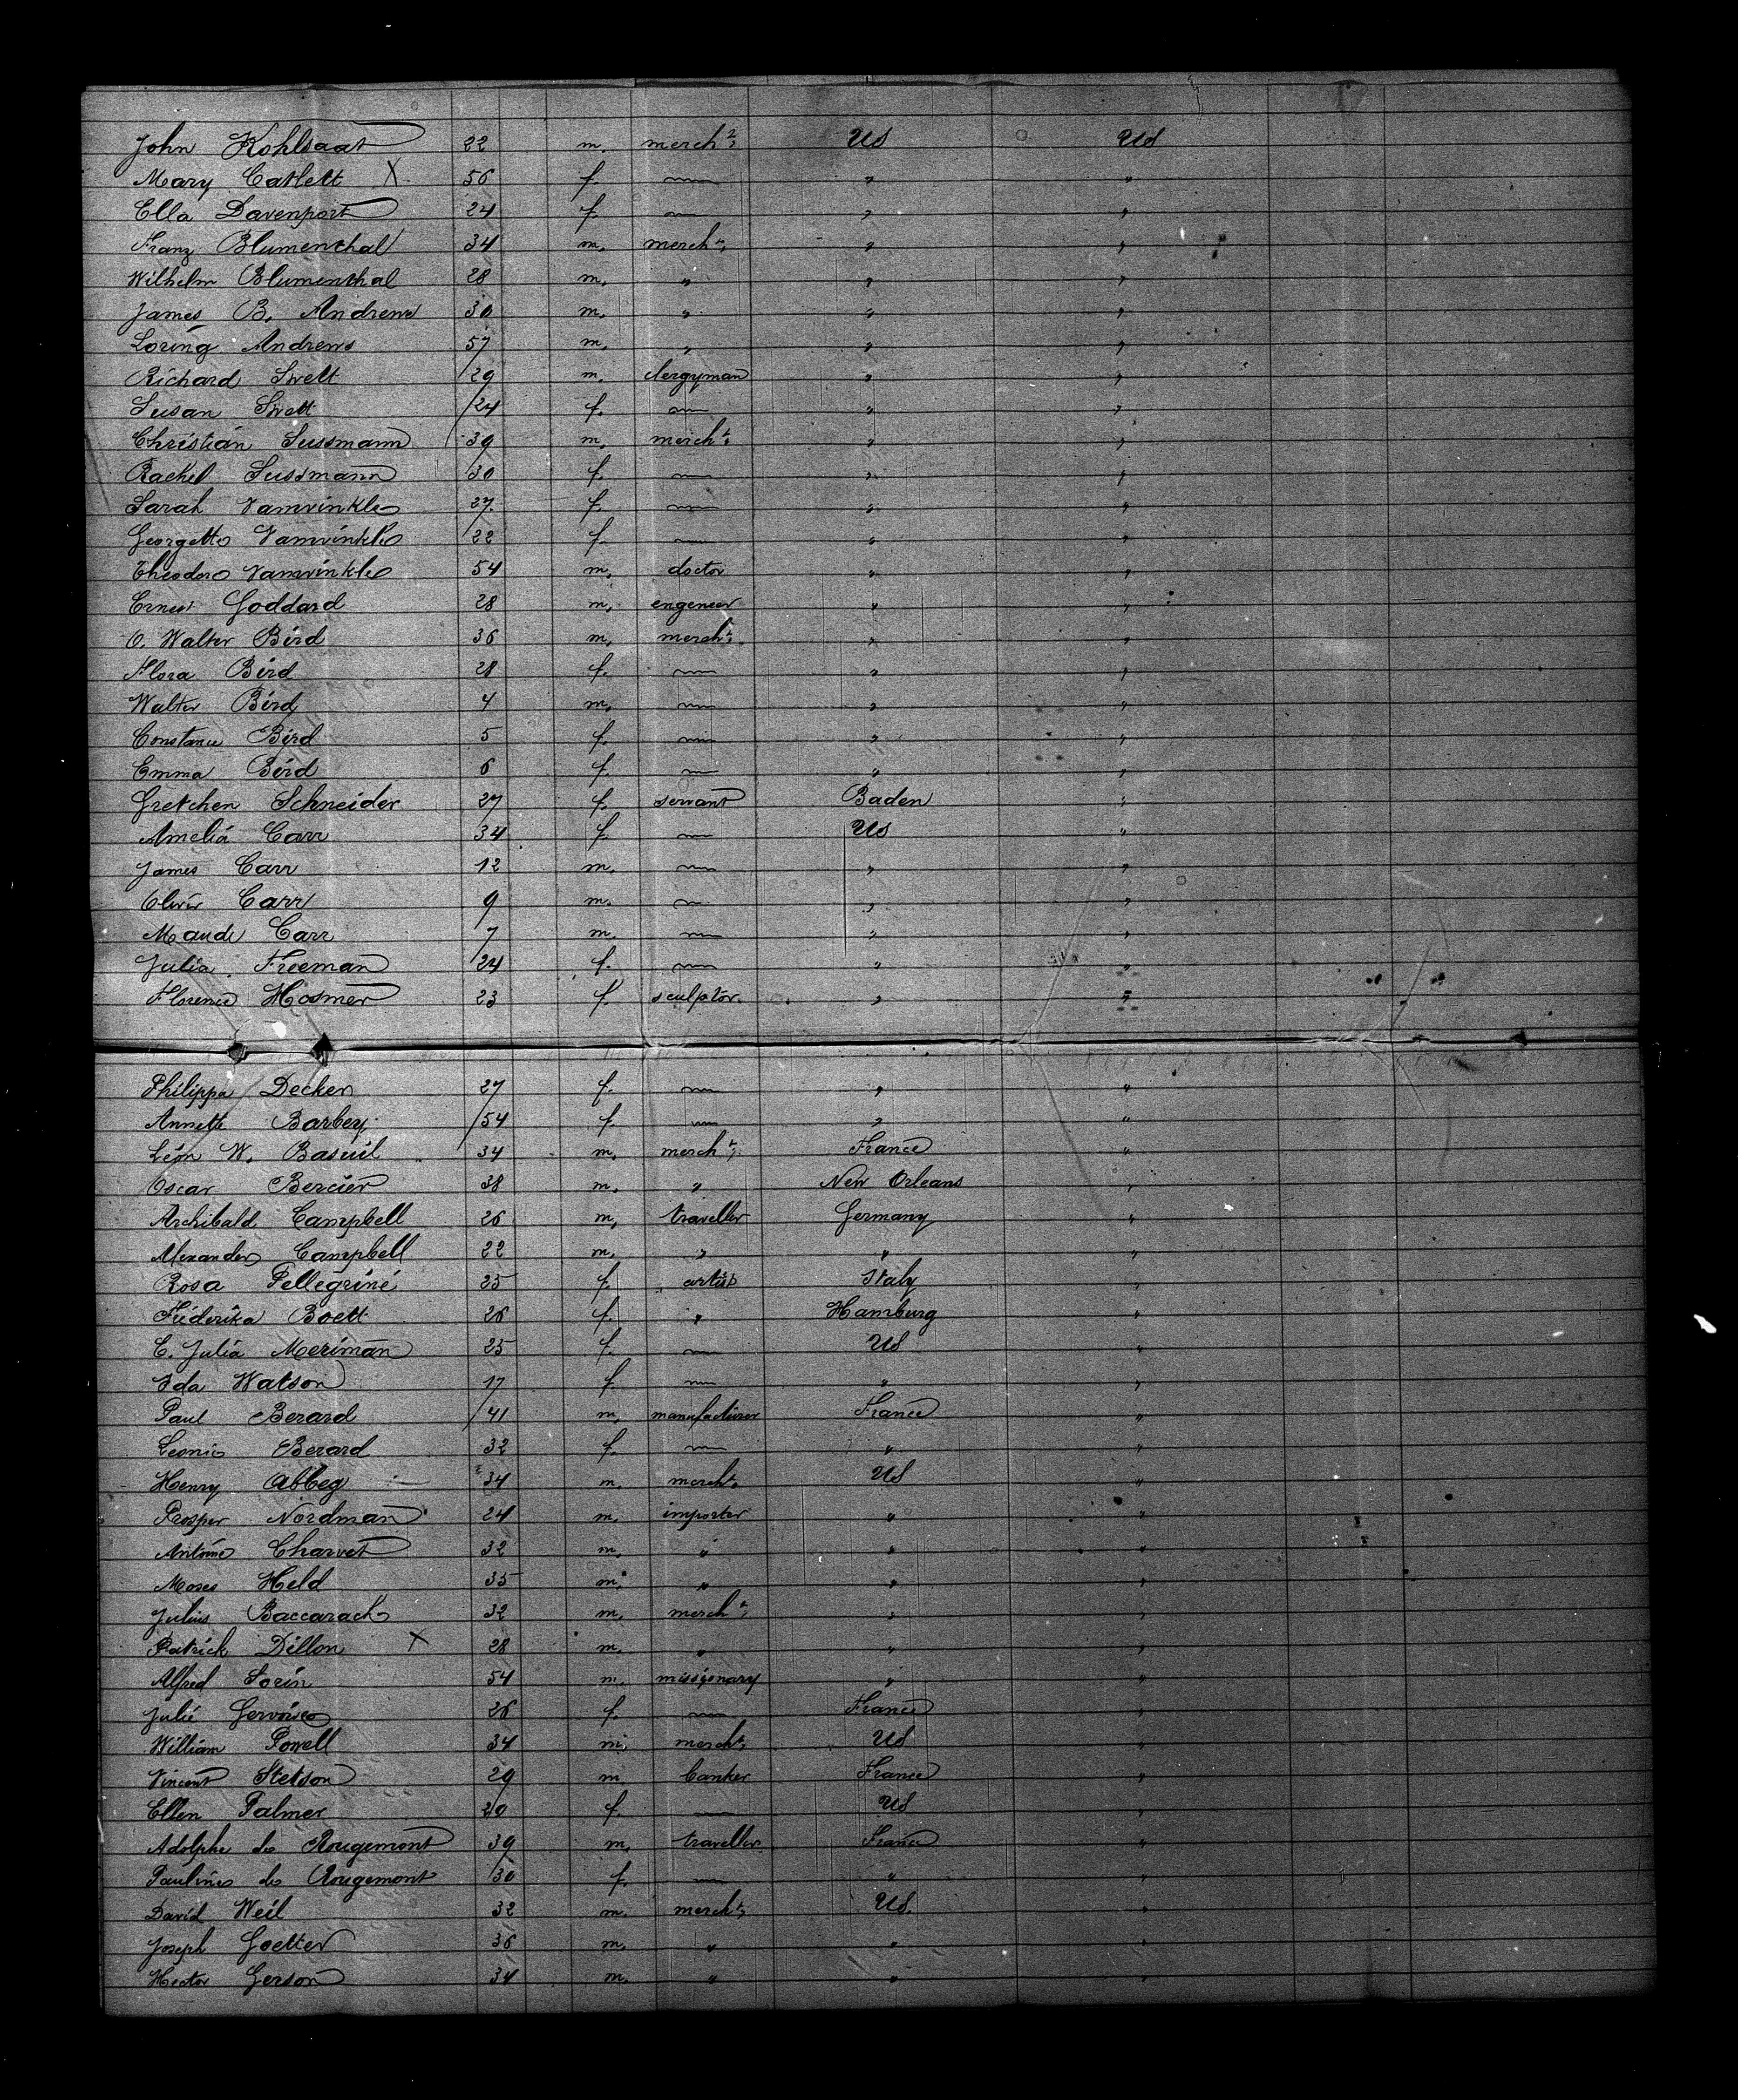 John Kohlsaat 22 m. mercht. US US
Mary Catlett X 56 f. — " "
Ella Davenport 24 f. — " "
Franz Blumenthal 34 m. mercht. " "
Wilhelm Blumenthal 28 m. " " "
James B. Andrews 30 m. " " "
Loring Andrews 57 m. " " "
Richard Swett 29 m. clergyman " "
Susan Swett 24 f. — " "
Christian Sussmann 39 m. mercht. " "
Rachel Sussmann 30 f. — " "
Sarah Vamvinkle 27 f. — " "
Georgette Vamvinkle 22 f. — " "
Theodore Vamvinkle 54 m. doctor " "
Ernest Goddard 28 m. engeneer " "
O. Walter Bird 36 m. mercht. " "
Flora Bird 28 f. — " "
Walter Bird 4 m. — " "
Constance Bird 5 f. — " "
Emma Bird 6 f. — " "
Gretchen Schneider 27 f. servant Baden "
Amelia Carr 34 f. — US "
James Carr 12 m. — " "
Oliver Carr 9 m. — " "
Maude Carr 7 m. — " "
Julia Freeman 24 f. — " "
Florence Hosmer 23 f. sculptor " "
Philippa Decker 27 f. — " "
Annette Barbey 54 f. — " "
Léon W. 34 m. mercht. France "
Oscar Bercier 38 m. " New Orleans "
Archibald Campbell 26 m. traveller Germany "
Alexander Campbell 22 m. " " "
Rosa Pellegrini 25 f. artist Italy "
Frederika Boett 26 f. " Hamburg "
E. Julia Meriman 25 f. — US "
Ida Watson 17 f. — " "
Paul Berard 41 m. manufacturer France "
Leonie Berard 32 f. — " "
Henry Abbeg 34 m. mercht. US "
Prosper Nordman 24 m. importer " "
Antoine Charvet 32 m. " " "
Moses Held 35 m. " " "
Julius Baccarach 32 m. mercht. " "
Patrick Dillon X 28 m. " " "
Alfred Sorin 54 m. missionary " "
Julie 26 f. — France "
William Powell 34 m. mercht. US "
Vincent Stetson 29 m. banker France "
Ellen Palmer 20 f. — US "
Adolphe de Rougemont 39 m. traveller France "
Pauline de Rougemont 30 f. — " "
David Weil 32 m. mercht. US "
Joseph Goetter 36 m. " " "
Hector Gerson 34 m. " " "